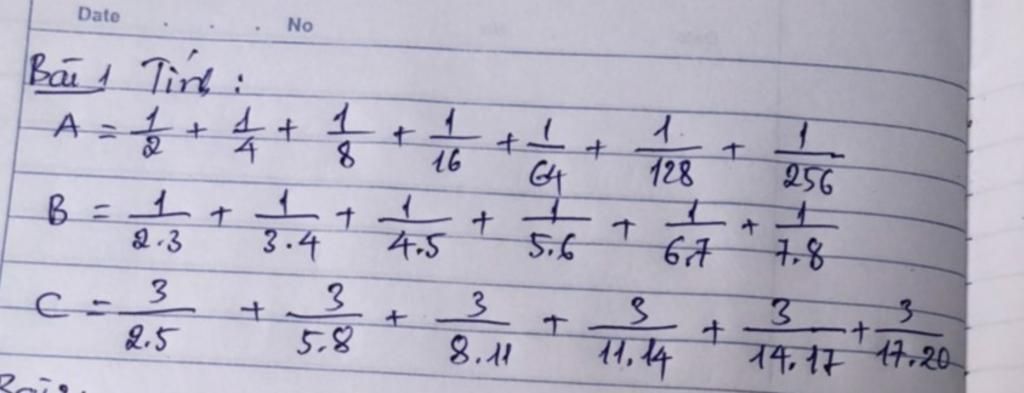 Date . . . No
Bài 1 Tính :
A = 1/2 + 1/4 + 1/8 + 1/16 + 1/64 + 1/128 + 1/256
B = 1/2.3 + 1/3.4 + 1/4.5 + 1/5.6 + 1/6.7 + 1/7.8
C = 3/2.5 + 3/5.8 + 3/8.11 + 3/11.14 + 3/14.17 + 3/17.20